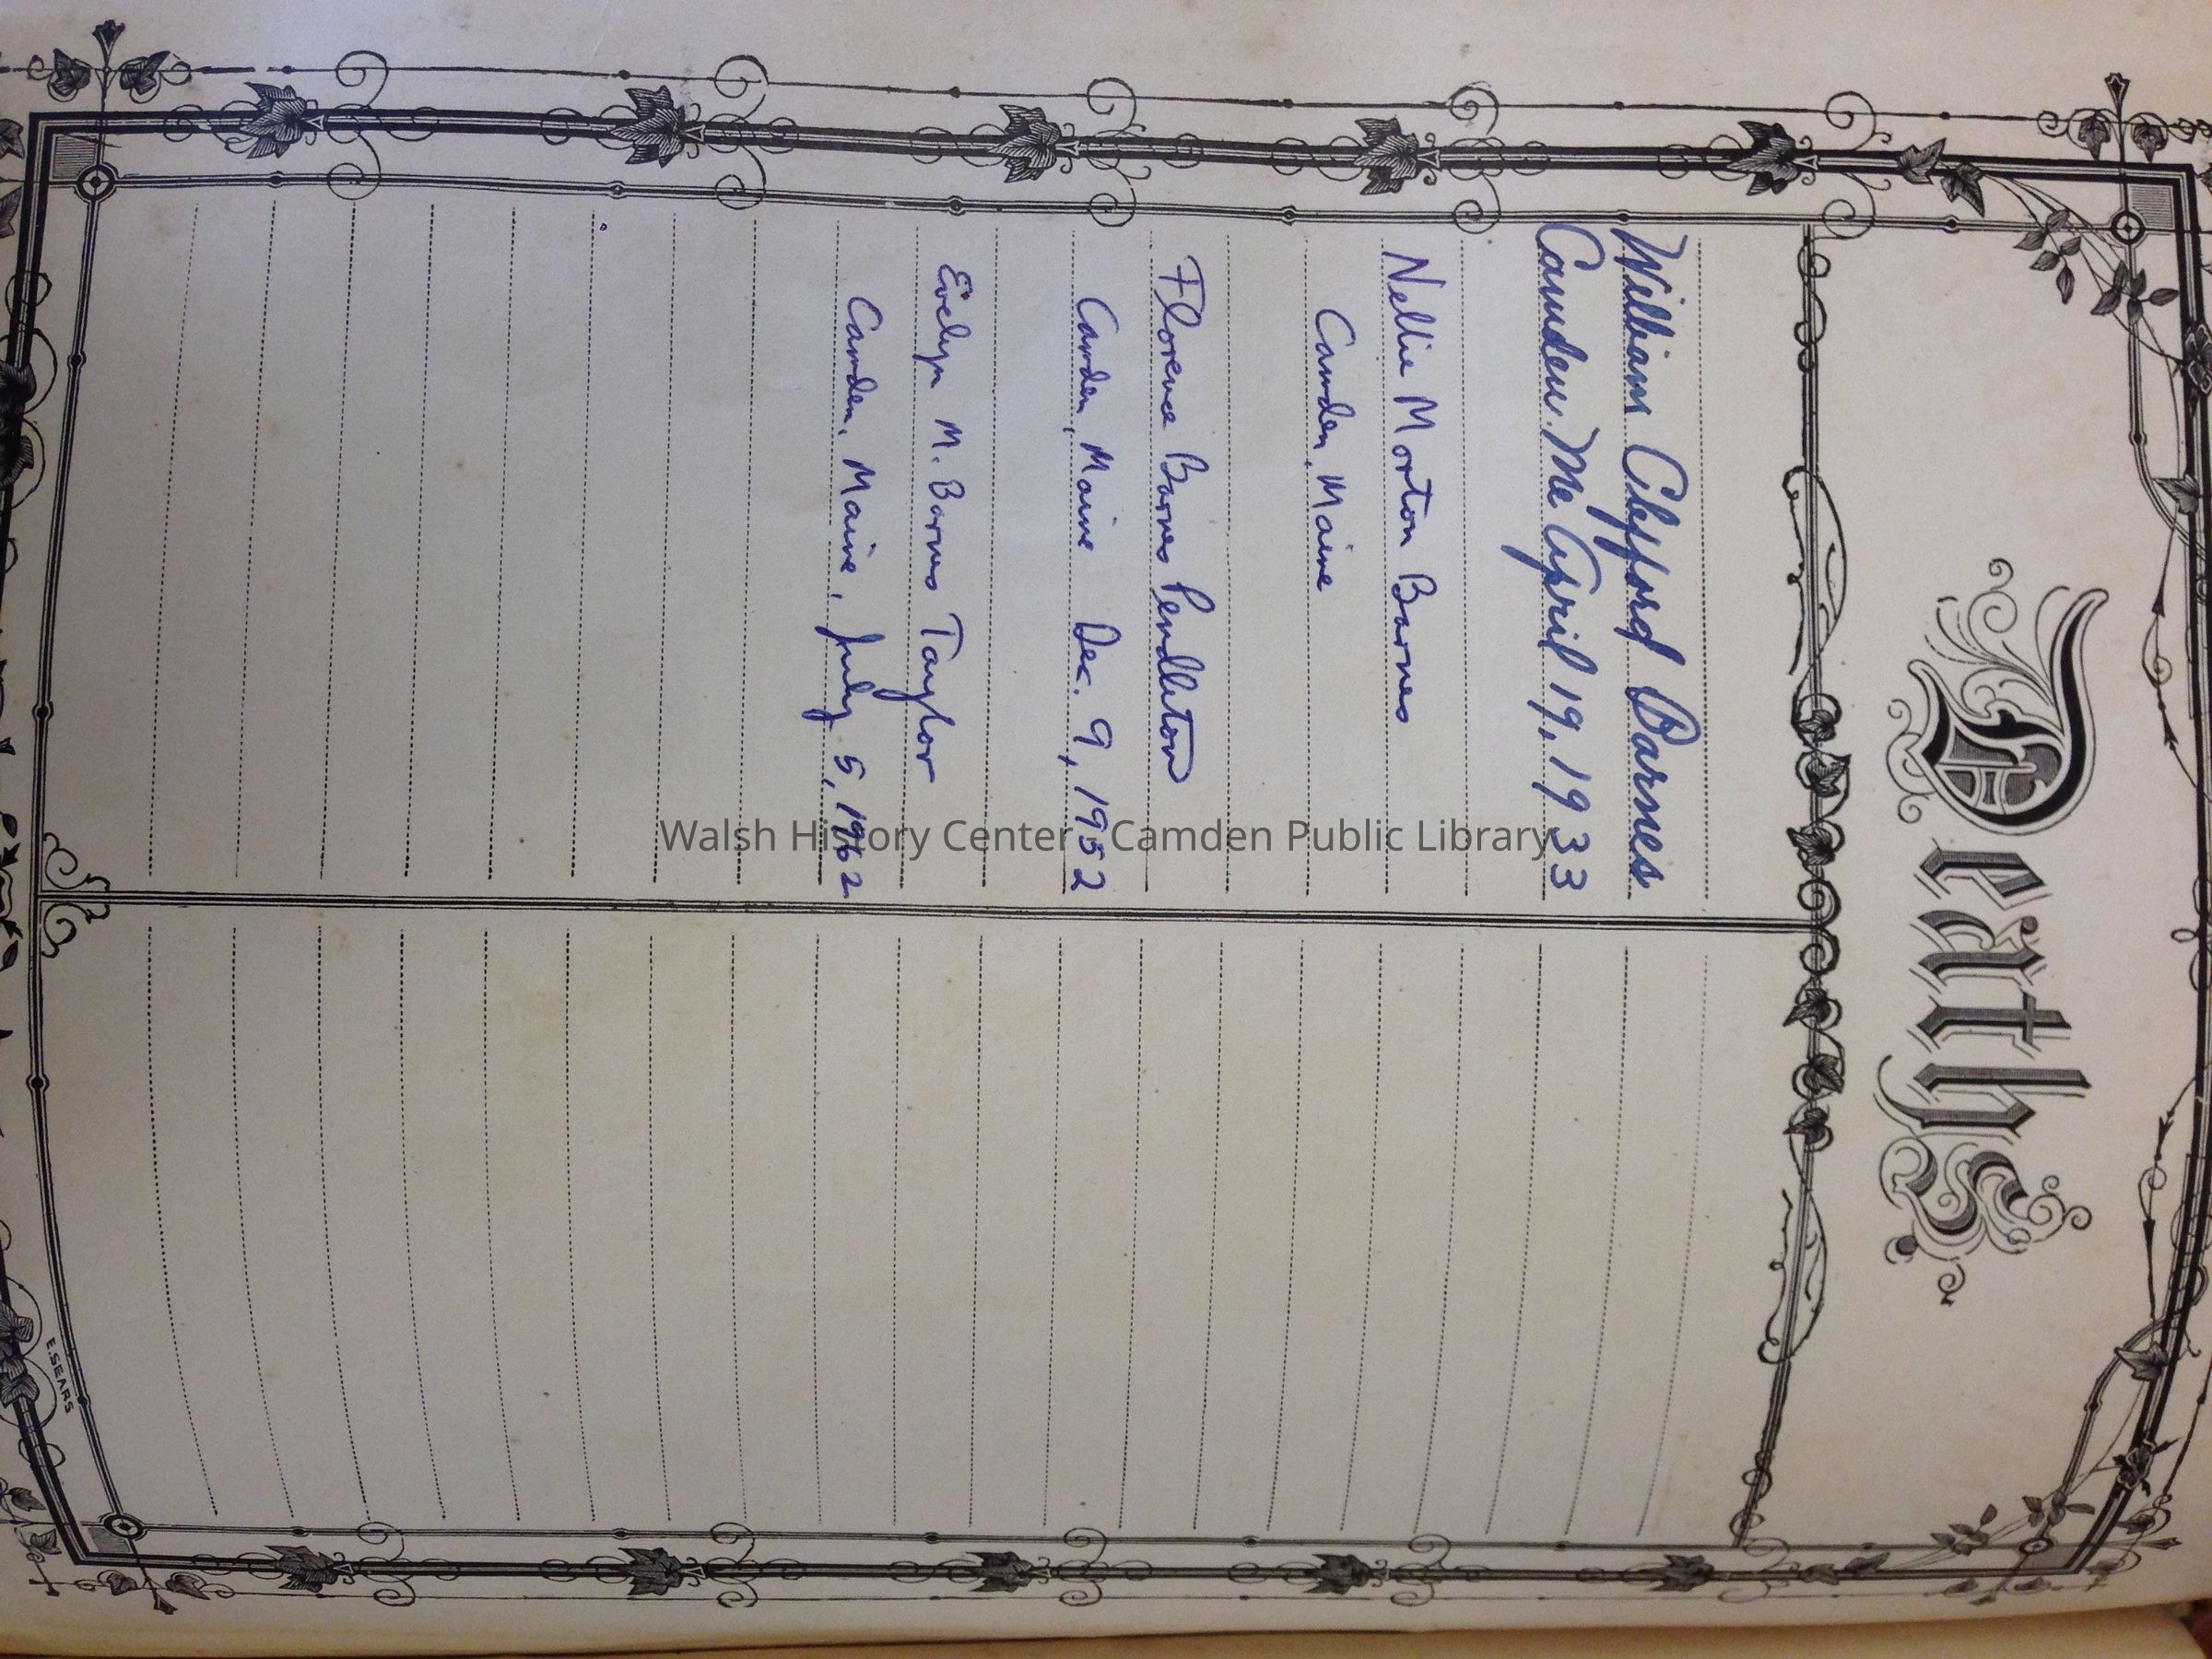 Deaths
William Clifford Barnes
Camden. Me April 19, 1933
Nellie Morton Barnes
Camden, Maine
Florence Barnes Pendleton
Camden, Maine Dec. 9, 1952
Evelyn M. Barnes Taylor
Camden, Maine, July 5, 1962
E SEARS
Walsh History Center, Camden Public Library